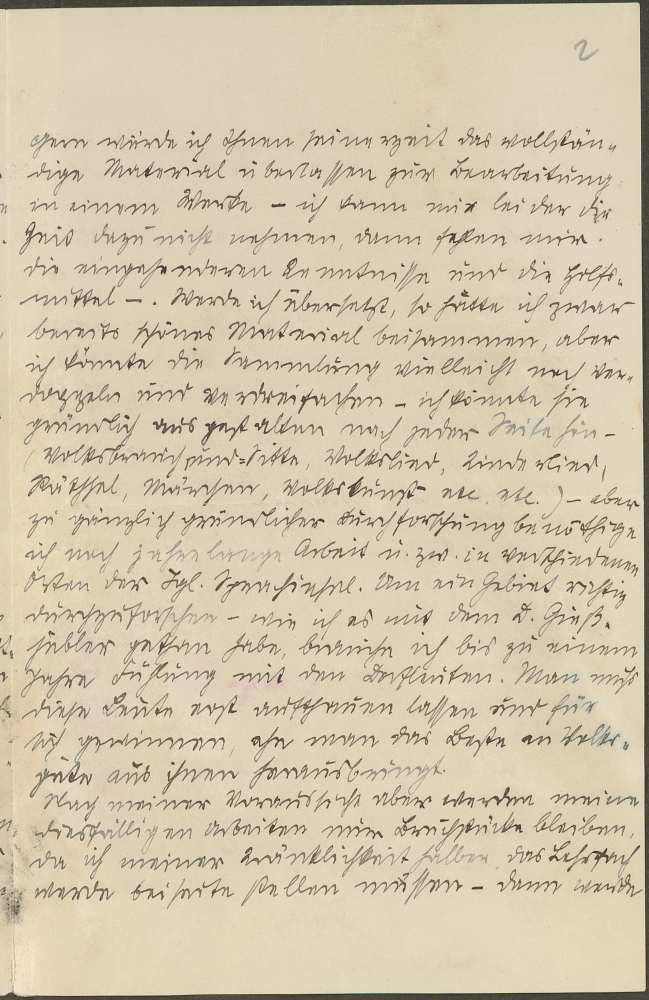 2
Gern würde ich Ihnen seinerzeit das vollstän-
dige Material überlassen zur Bearbeitung
in einem Werke – ich kann mir leider die
Zeit dazu nicht nehmen, dann fehlen mir
die eingehenderen Kenntnisse und die Hilfs-
mittel –. Werde ich übersetzt, so hätte ich zwar
bereits schönes Material beisammen, aber
ich könnte die Sammlung vielleicht noch ver-
doppeln und verdreifachen – ich könnte sie
gründlich ausgestalten nach jeder Seite hin –
(Volksbrauch und =Sitte, Volkslied, Kinderlied,
Räthsel, Märchen, Volkskunst etc. etc.) – aber
zu gänzlich gründlicher Durchforschung benöthige
ich noch jahrelange Arbeit u. zw. in verschiedenen
Orten der Igl. Sprachinsel. Um ein Gebiet richtig
durchzuforschen – wie ich es mit dem D. Gieß-
hübler gethan habe, brauche ich bis zu einem
Jahre Fühlung mit den Dorfleuten. Man muß
diese Leute erst aufthauen lassen und für
sich gewinnen, ehe man das Beste an Volks-
güte aus ihnen herausbringt.
Nach meiner Voraussicht aber werden meine
diesfälligen Arbeiten nur Bruchstücke bleiben,
da ich meiner Kränklichkeit halber das Lehrfach
werde beiseite stellen müssen – dann werde